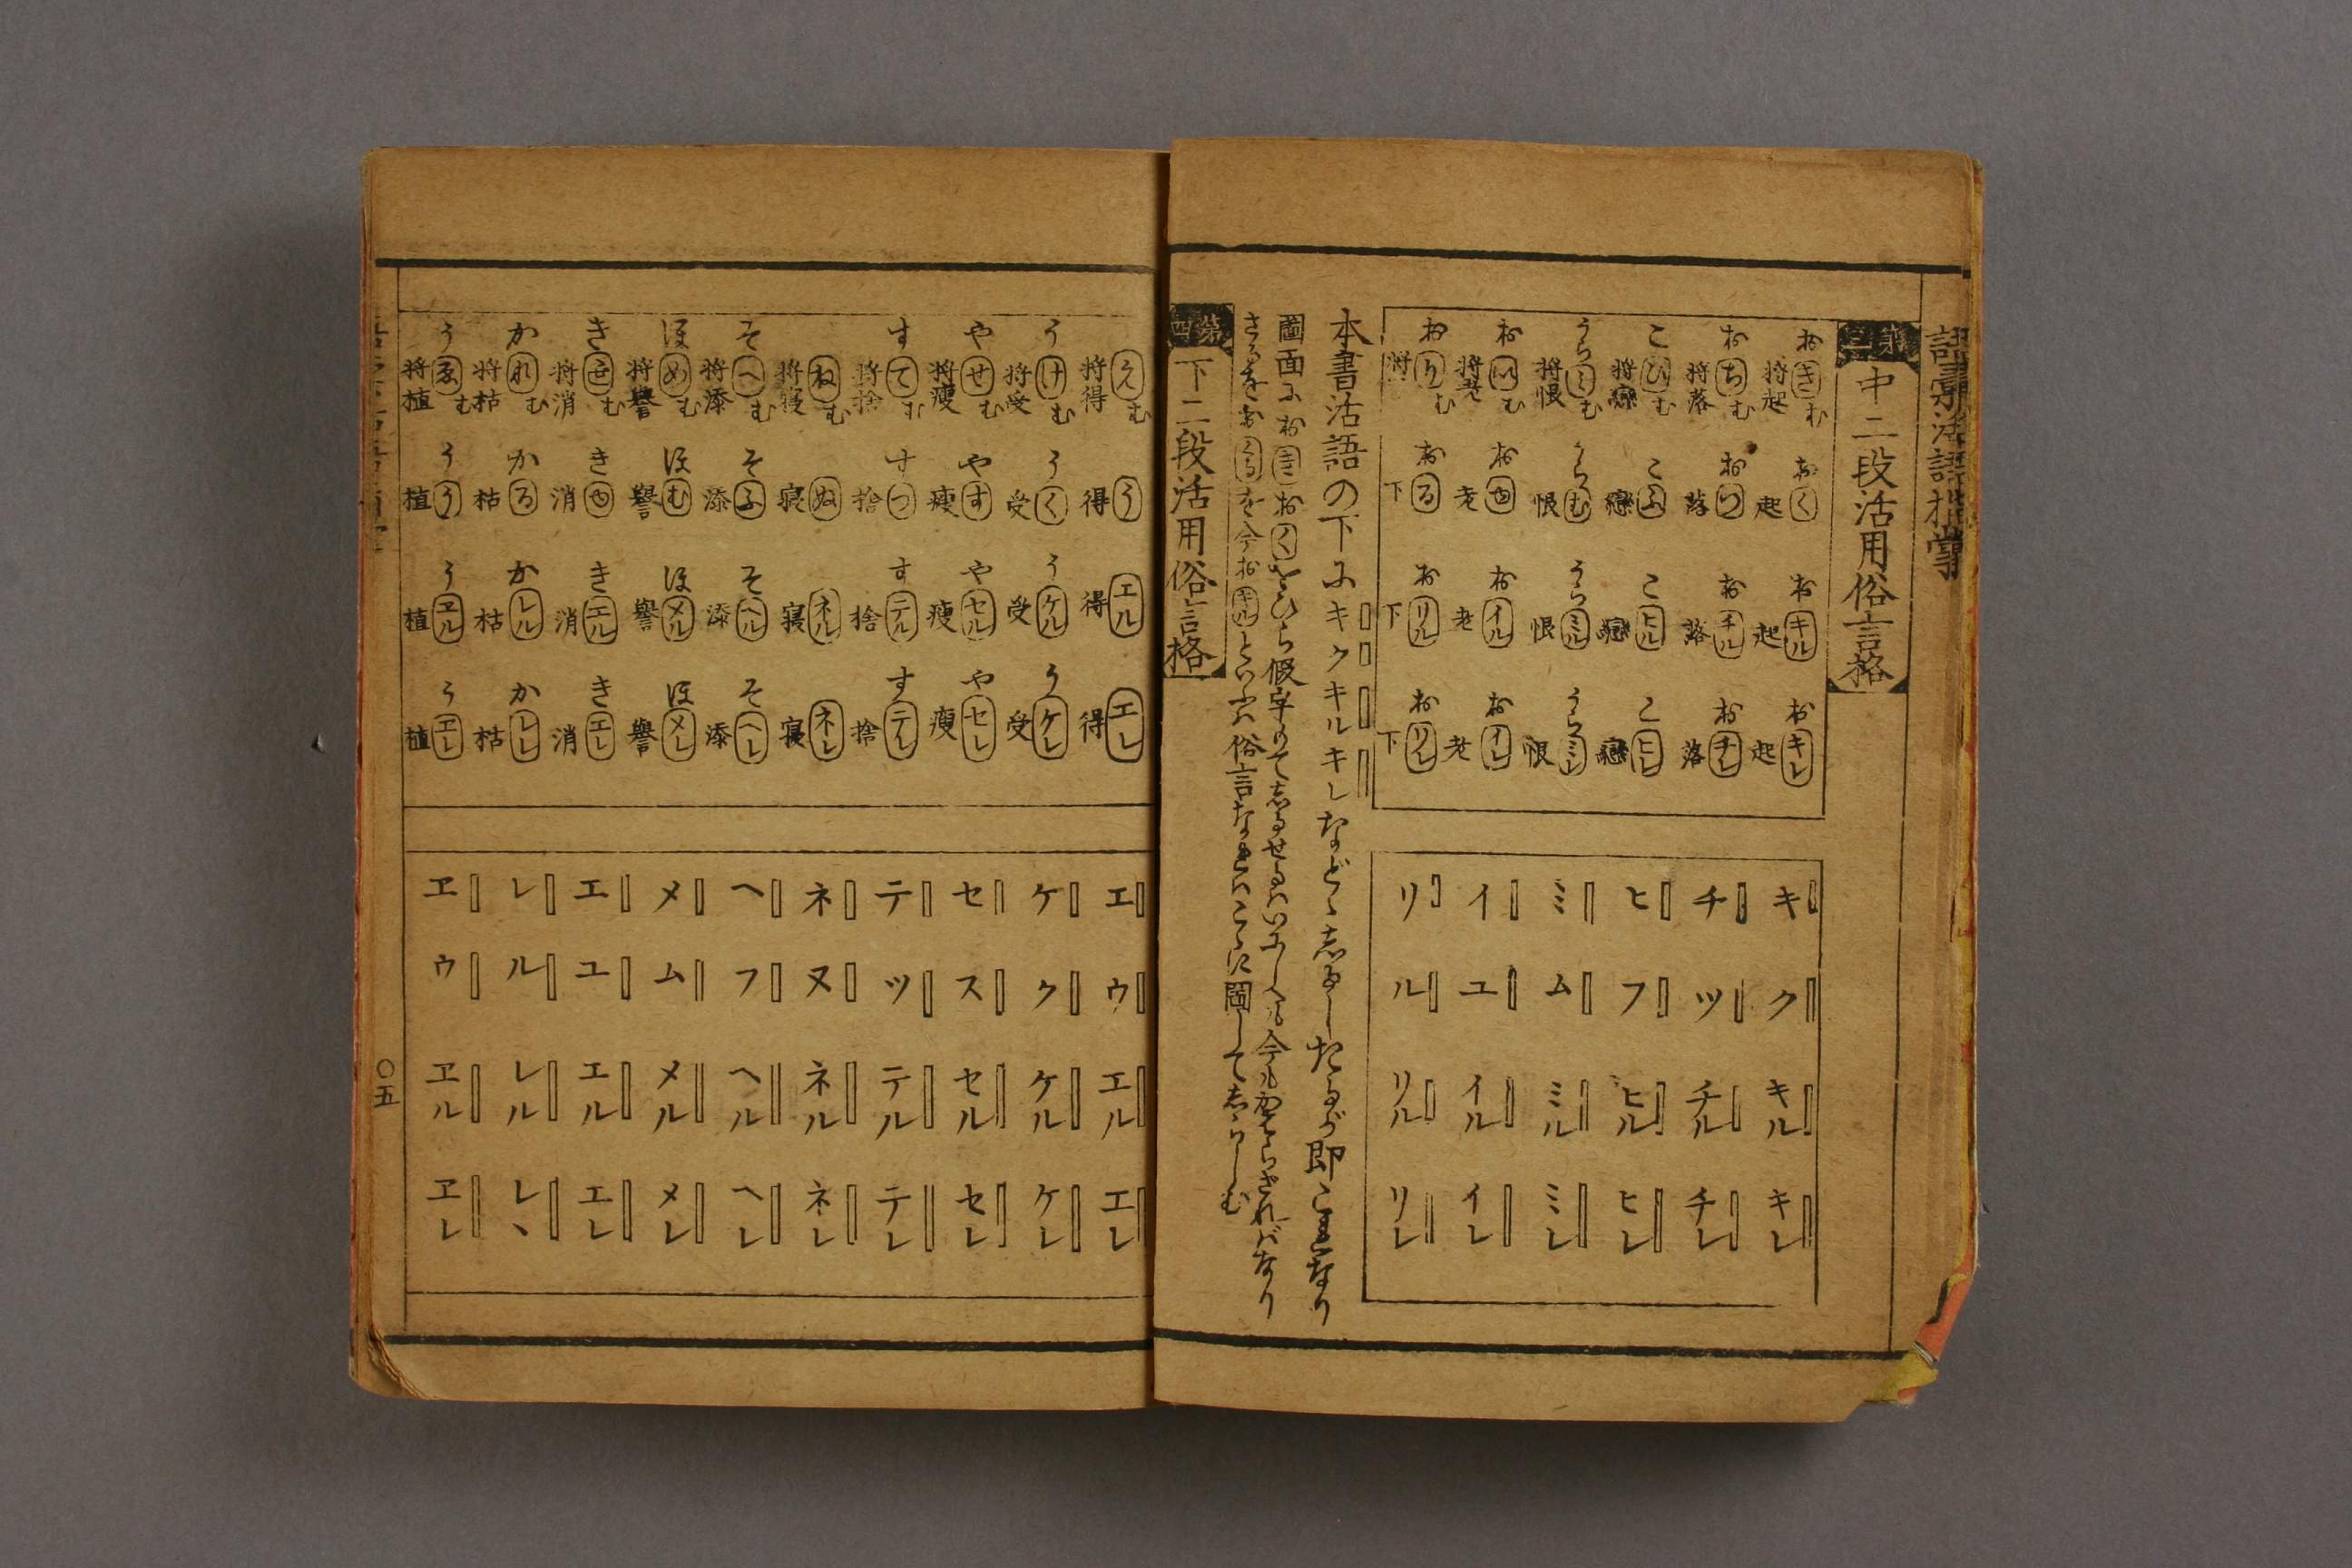 第三
中二段活用俗言格
お(き)む 将起 お(く) 起 お(キル) 起 お(キレ) 起
お(ち)む 将落 お(つ) 落 お(チル) 落 お(チレ) 落
こ(ひ)む 将戀 こ(ふ) 戀 こ(ヒル) 戀 こ(ヒレ) 戀
うら(み)む 将恨 うら(む) 恨 うら(ミル) 恨 うら(ミレ) 恨
お(い)む 将老 お(ゆ) 老 お(イル) 老 お(イレ) 老
お(り)む 将 お(る) 下 お(リル) 下 お(リレ) 下
キ ク キル キレ
チ ツ チル チレ
ヒ フ ヒル ヒレ
ミ ム ミル ミレ
イ ユ イル イレ
リ ル リル リレ
本書活語の下にキクキルキレなどゝしるしたるが即これなり
圖面にお(き)お(く)をひら假字もて志るせるはいにしへも今もかはらざればなり
さるをお(くる)を今お(キル)といふは俗言なればこゝに圖して志らしむ
第四
下二段活用俗言格
(え)む 将得 (う) 得 (エル) 得 (エレ) 得
う(け)む 将受 う(く) 受 う(ケル) 受 う(ケレ) 受
や(せ)む 将瘦 や(す) 瘦 や(セル) 瘦 や(セレ) 瘦
す(て)む 将捨 す(つ) 捨 す(テル) 捨 す(テレ) 捨
(ね)む 将寝 (ぬ) 寝 (ネル) 寝 (ネレ) 寝
そ(へ)む 将添 そ(ふ) 添 そ(ヘル) 添 そ(ヘレ) 添
ほ(め)む 将譽 ほ(む) 譽 ほ(メル) 譽 ほ(メレ) 譽
き(え)む 将消 き(ゆ) 消 き(エル) 消 き(エレ) 消
か(れ)む 将枯 か(る) 枯 か(レル) 枯 か(レレ) 枯
う(ゑ)む 将植 う(う) 植 う(ヱル) 植 う(エレ) 植
エ ウ エル エレ
ケ ク ケル ケレ
セ ス セル セレ
テ ツ テル テレ
ネ ヌ ネル ネレ
ヘ フ ヘル ヘレ
メ ム メル メレ
エ ユ エル エレ
レ ル レル レヽ
ヱ ウ ヱル ヱレ
〇五